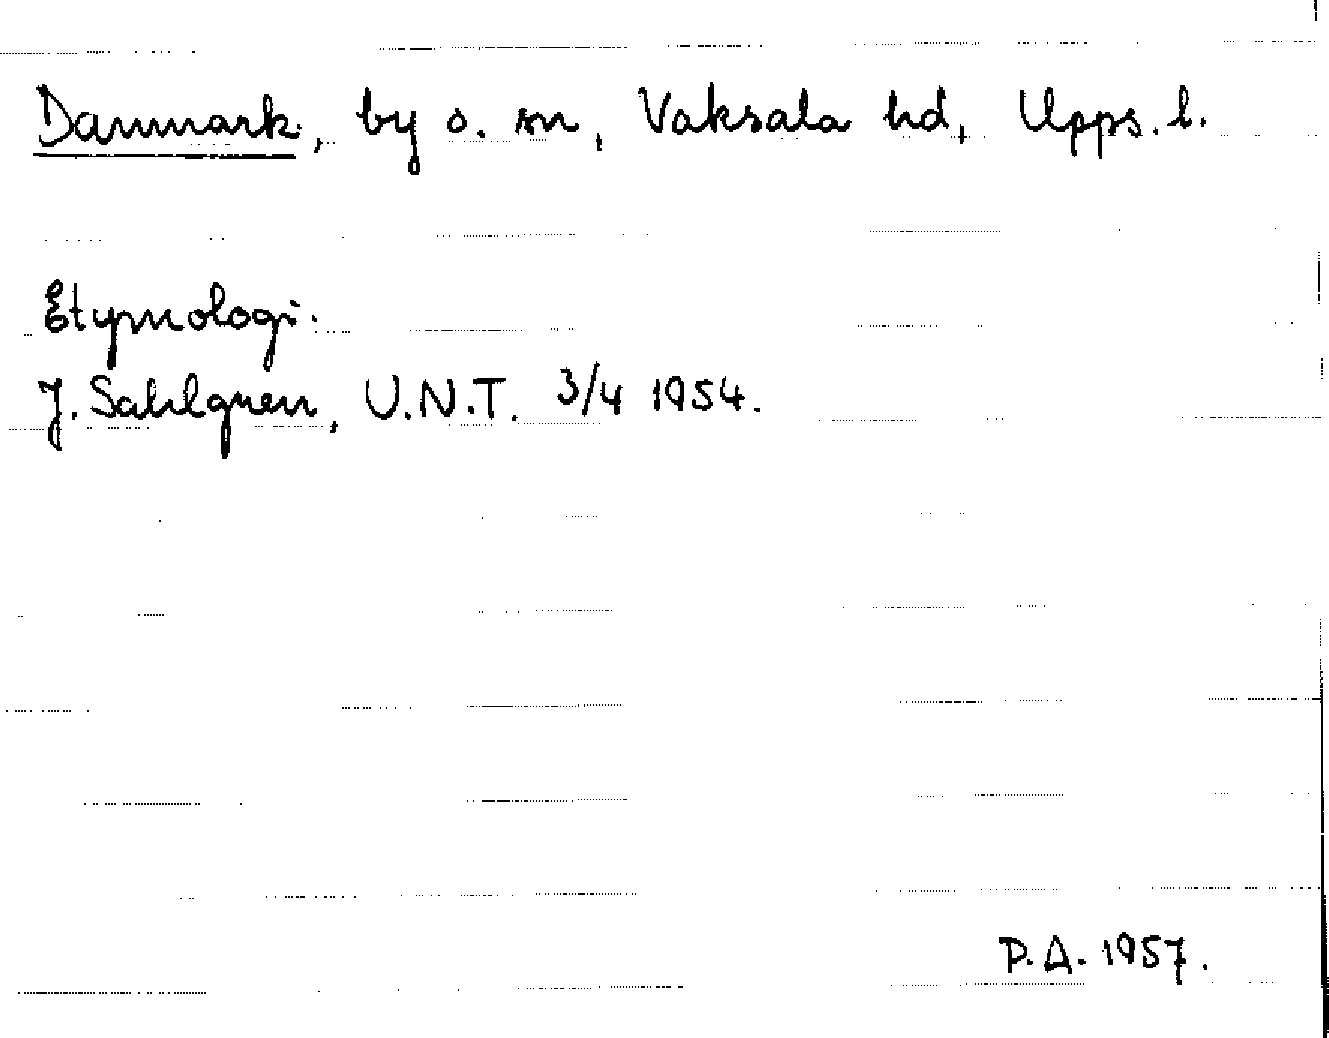 Danmark, by o. sn, Vaksala hd, Upps. l.
Etymologi:
J. Sahlgren, U.N.T. 3/4 1954.
P.A. 1957.